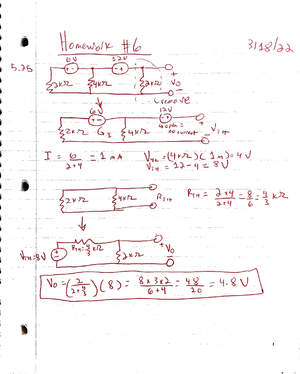 Homework #6
3/18/22
5.25
6V 12V
2kΩ 4kΩ 2kΩ Vo
remove
6V 12V
2kΩ G I 4kΩ
I = 6/(2+4) = 1 mA
V4k = (4kΩ)(1m) = 4V
VTH = 12-4 = 8V
2kΩ 4kΩ RTH
RTH = (2×4)/(2+4) = 8/6 = 4/3 kΩ
VTH=8V RTH=4/3 kΩ 2kΩ Vo
Vo = (2/(2+4/3))(8) = (8×3×2)/(6+4) = 48/10 = 4.8V